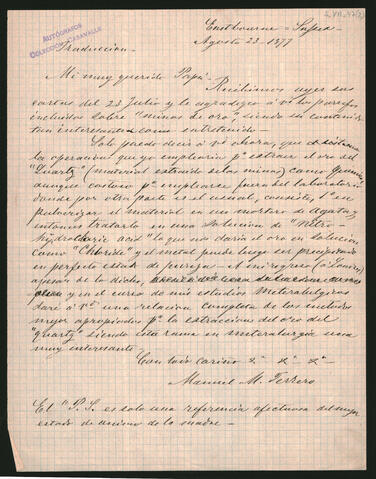 AUTÓGRAFOS
COLECCIÓN CASAVALLE
Eastbourne = Sussex
Agosto 23. 1877
Traduccion
Mi muy querido Papá
Recibimos ayer sus
cartas del 23 Julio y le agradezco á Vd los parrafos
incluidos sobre "minas de oro" siendo su contenido
tan interesante como entretenido.
Solo puedo decir á Vd ahora, que
la operacion que yo emplearia pa extraer el oro del
"Quartz" (material extraido de las minas) como
aunque costoso pa emplearse fuera del laboratorio
donde por otra parte es el usual, consiste, 1o en
pulverizar el material en un mortero de agata y
entonces tratarlo en una solucion de "Nitro-
hydrochloric acid" lo que nos daria el oro en solucion
como "Chloride" y el metal puede luego ser precipitado
en perfecto estado de pureza. A mi regreso (á Londres)
apesar de lo dicho,
y en el curso de mis estudios Metalurgicos
daré á Vd una relacion completa de los metodos
mejor apropiados pa la extraccion del oro del
"quartz" siendo esta rama en metalurgia una
muy interesante
Con todo cariño
Manuel M. Terrero
El "P.S. es solo una referencia afectuosa del mejor
estado de animo de la madre.